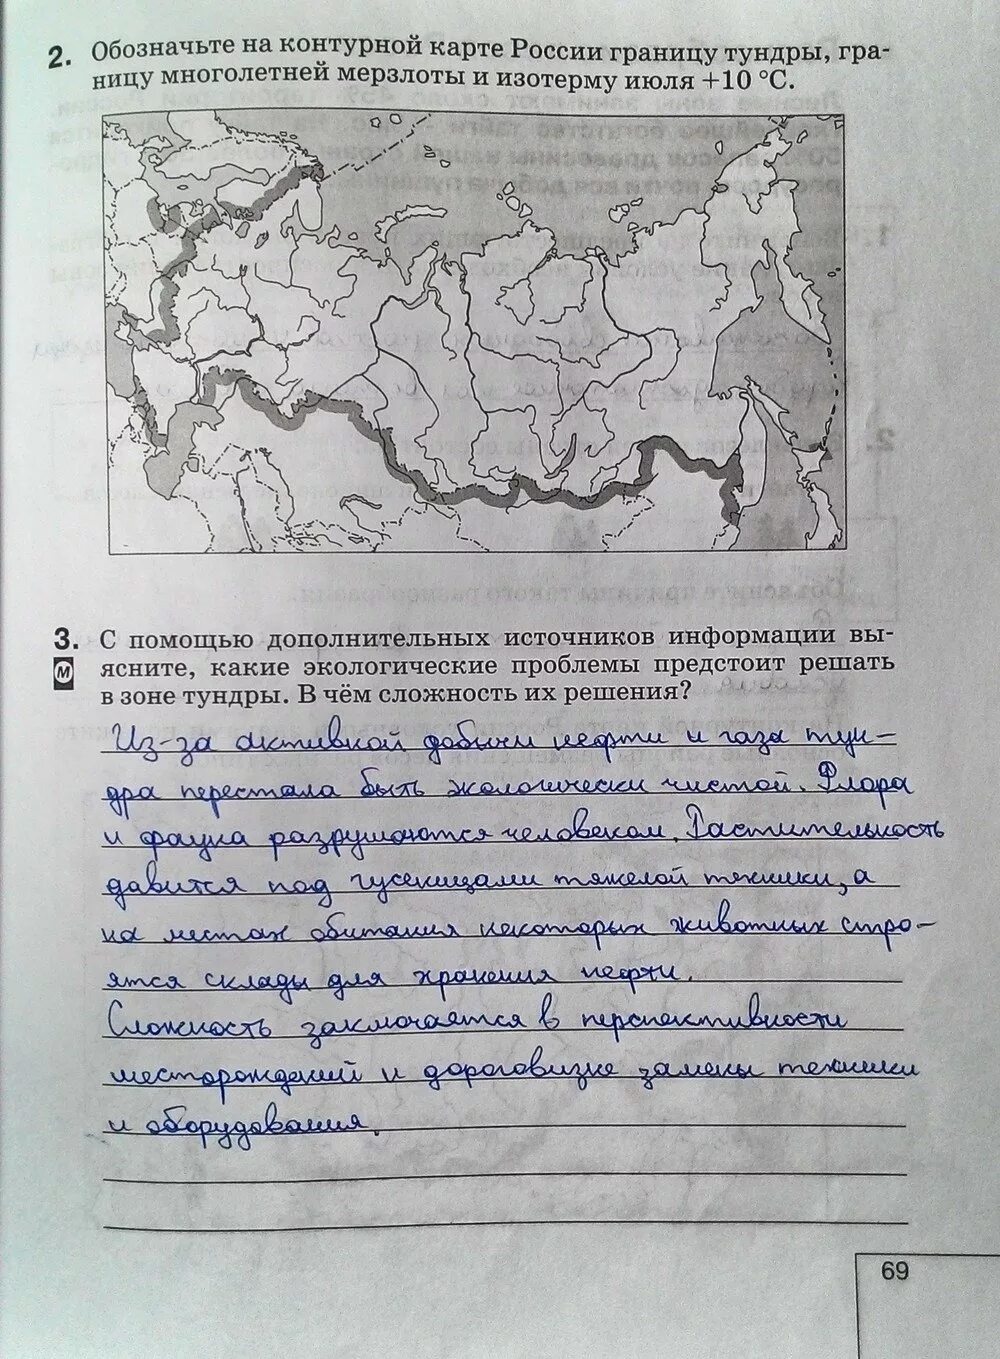 2. Обозначьте на контурной карте России границу тундры, гра-
ницу многолетней мерзлоты и изотерму июля +10 °С.
3. С помощью дополнительных источников информации вы-
М ясните, какие экологические проблемы предстоит решать
в зоне тундры. В чём сложность их решения?
Из-за активной добычи нефти и газа тун-
дра перестала быть экологически чистой. Флора
и фауна разрушаются человеком. Растительность
давится под гусеницами тяжелой техники, а
на местах обитания некоторых животных стро-
ятся склады для хранения нефти.
Сложность заключается в перспективности
месторождений и дороговизне замены техники
и оборудования.
69